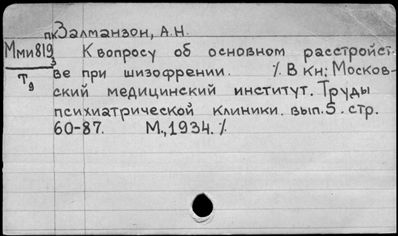 пк Залманзон, А.Н.
Мми819 К вопросу об основном расстройст-
3
Т9 ве при шизофрении. /. В кн: Москов-
ский медицинский институт. Труды
психиатрической клиники. вып. 5. стр.
60-87. М., 1934. /.